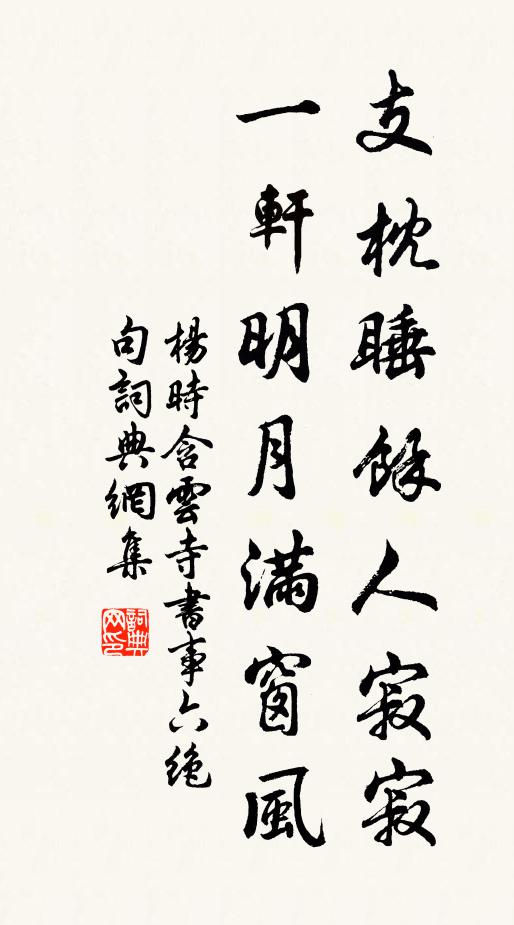 支枕睡餘人寂寂
一軒明月滿窗風
楊時含雲寺書事六絶
句詞典網集
詞典
网印